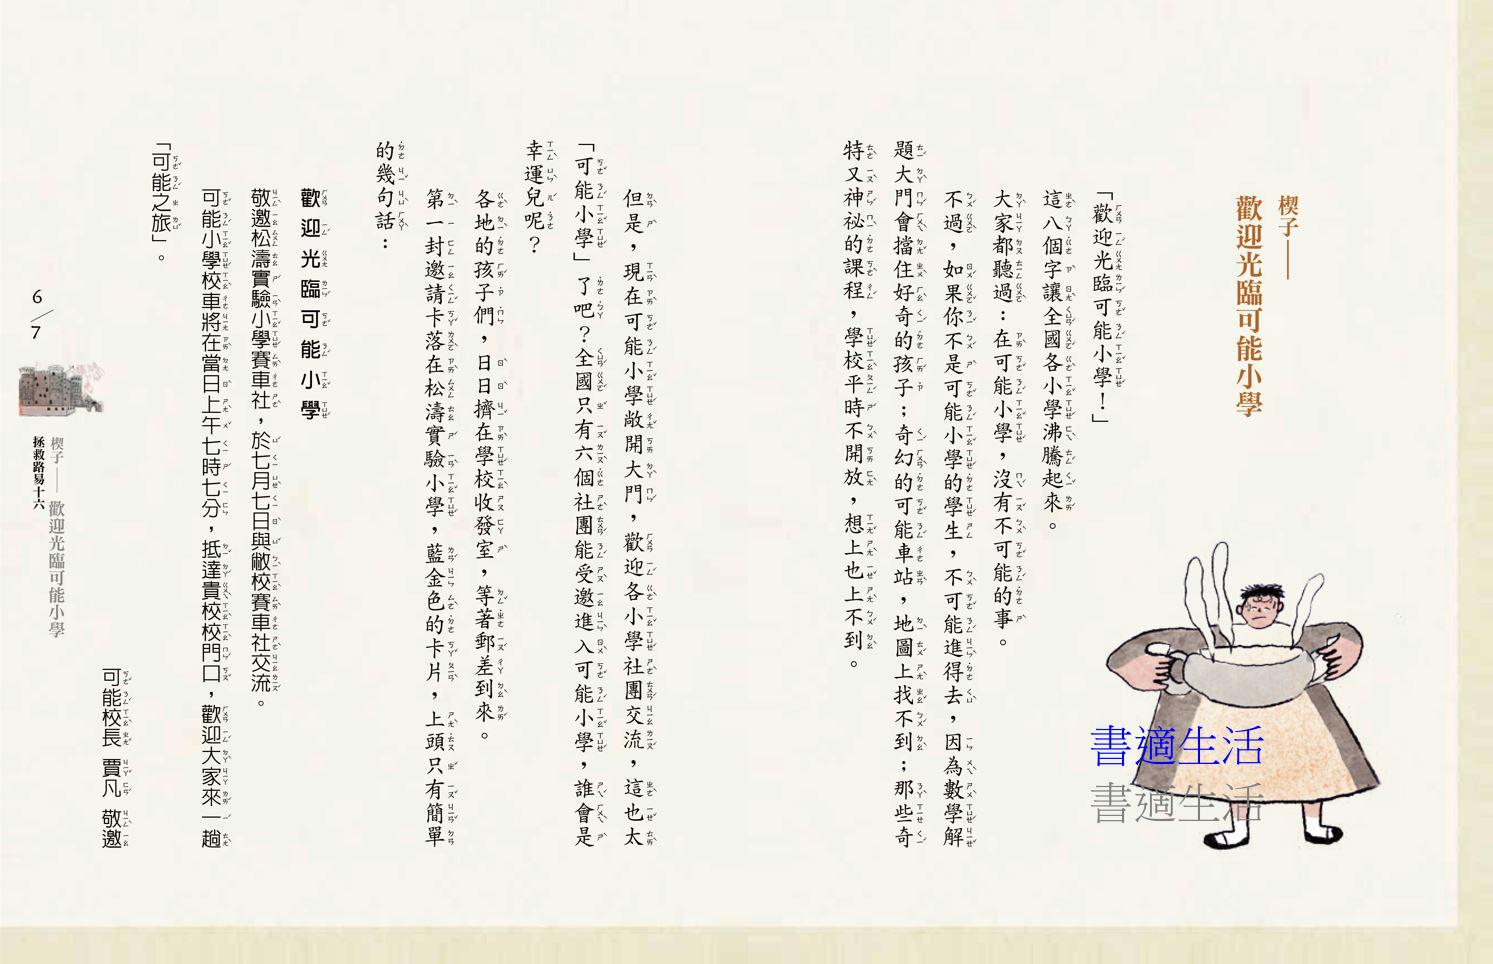 楔子——
歡迎光臨可能小學
「歡迎光臨可能小學！」
這八個字讓全國各小學沸騰起來。
大家都聽過：在可能小學，沒有不可能的事。
不過，如果你不是可能小學的學生，不可能進得去，因為數學解
題大門會擋住好奇的孩子；奇幻的可能車站，地圖上找不到；那些奇
特又神祕的課程，學校平時不開放，想上也上不到。
但是，現在可能小學敞開大門，歡迎各小學社團交流，這也太
「可能小學」了吧？全國只有六個社團能受邀進入可能小學，誰會是
幸運兒呢？
各地的孩子們，日日擠在學校收發室，等著郵差到來。
第一封邀請卡落在松濤實驗小學，藍金色的卡片，上頭只有簡單
的幾句話：
歡迎光臨可能小學
敬邀松濤實驗小學賽車社，於七月七日與敝校賽車社交流。
可能小學校車將在當日上午七時七分，抵達貴校校門口，歡迎大家來一趟
「可能之旅」。
可能校長 賈凡 敬邀
6/7
楔子——歡迎光臨可能小學
拯救路易十六
書適生活
書適生活